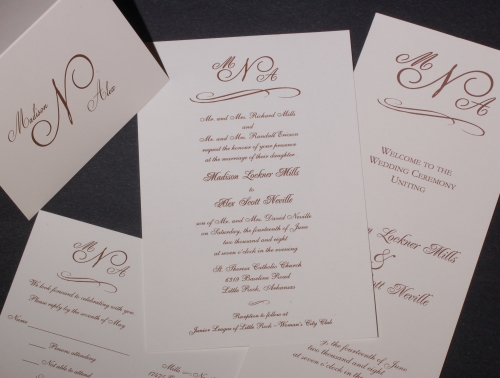 Madison
N
Alex
M N A
Mr. and Mrs. Richard Mills
and
Mr. and Mrs. Randall Ericson
request the honour of your presence
at the marriage of their daughter
Madison Lockner Mills
to
Alex Scott Neville
son of Mr. and Mrs. David Neville
on Saturday, the fourteenth of June
two thousand and eight
at seven o'clock in the evening
St. Theresa Catholic Church
6219 Baseline Road
Little Rock, Arkansas
Reception to follow at
Junior League of Little Rock - Woman's City Club
M N A
Welcome to the
Wedding Ceremony
Uniting
Lockner Mills
&
Scott Neville
the fourteenth of June
two thousand and eight
at seven o'clock in the
M N A
We look forward to celebrating with you
Please reply by the month of May
Name
Person attending
Not able to attend
Mills